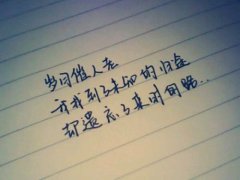 岁月催人老
我找到了未知的归途
却遗忘了来时的路...